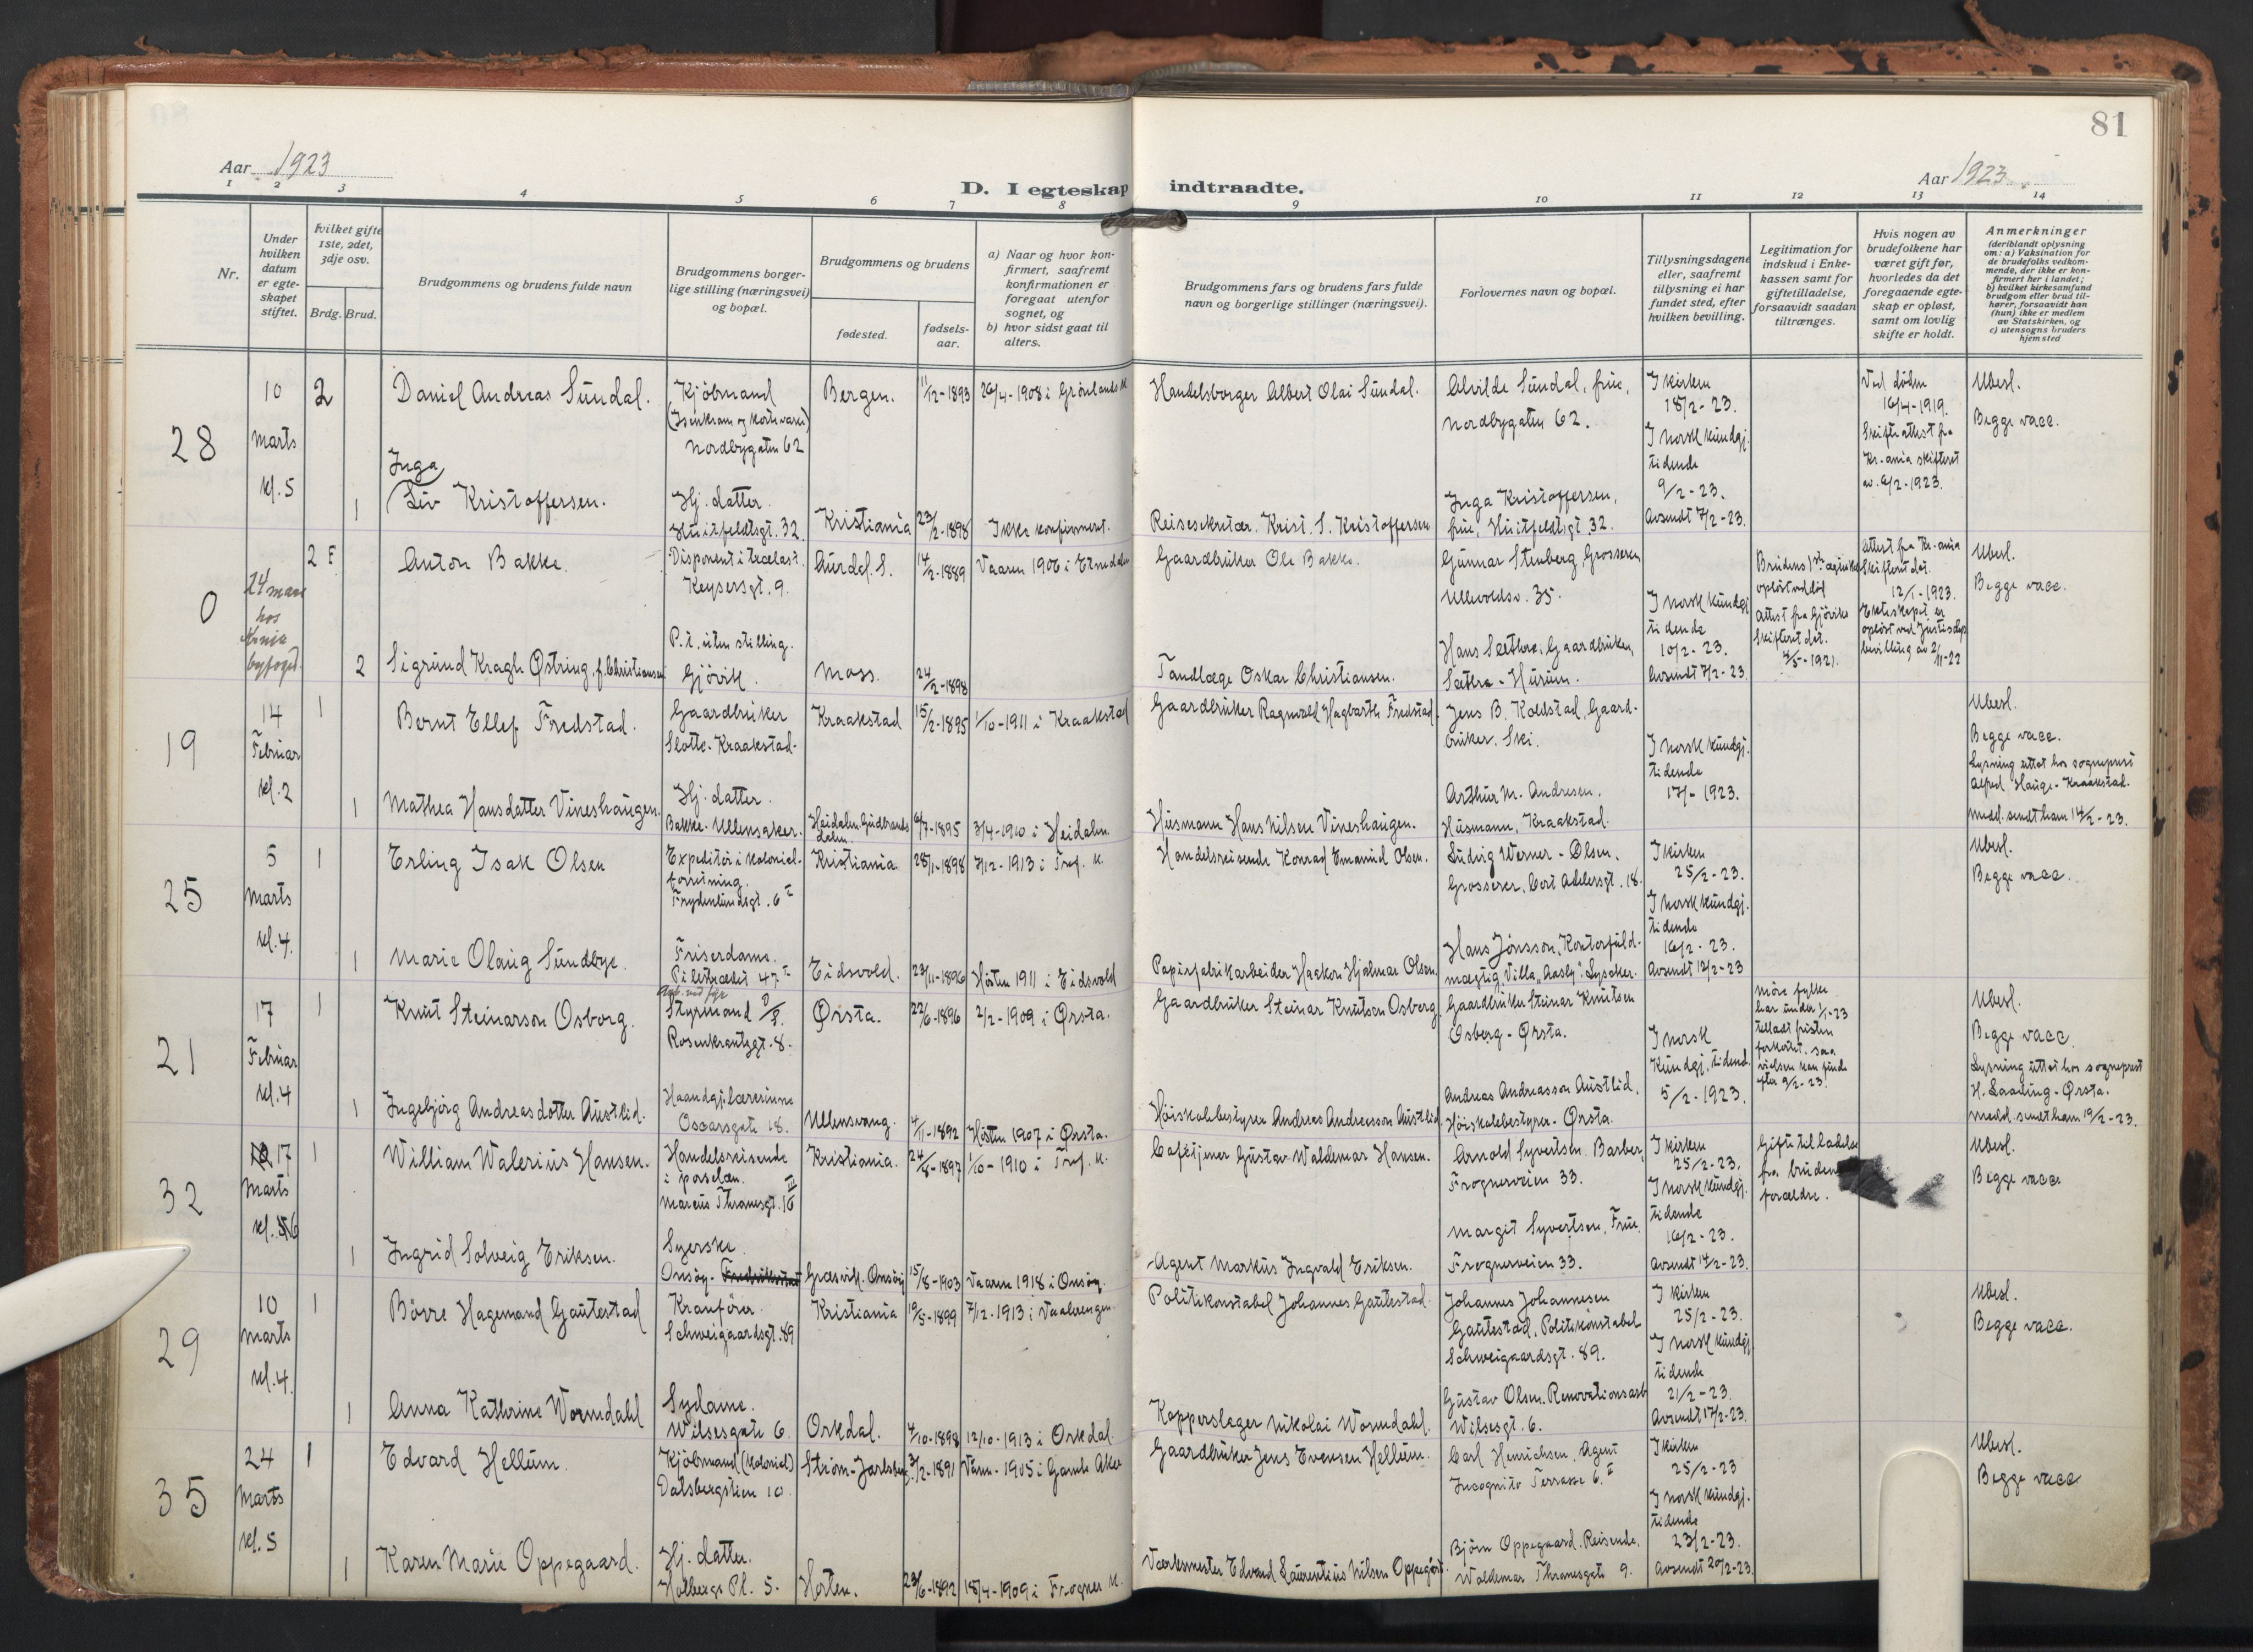 81
Aar 1923
D. I egteskap indtraadte.
Aar 1923
1 2 3 4 5 6 7 8 9 10 11 12 13 14
Nr.
Under hvilken datum er egteskapet stiftet.
Hvilket gifte 1ste, 2det, 3dje osv.
Brdg. Brud.
Brudgommens og brudens fulde navn
Brudgommens borgerlige stilling (næringsvei) og bopæl.
Brudgommens og brudens
fødested.
fødselsaar.
a) Naar og hvor konfirmert, saafremt konfirmationen er foregaat utenfor sognet, og
b) hvor sidst gaat til alters.
Brudgommens fars og brudens fars fulde navn og borgerlige stillinger (næringsvei).
Forlovernes navn og bopæl.
Tillysningsdagene eller, saafremt tillysning ei har fundet sted, efter hvilken bevilling.
Legitimation for indskud i Enkekassen samt for giftetilladelse, forsaavidt saadan tiltrænges.
Hvis nogen av brudefolkene har været gift før, hvorledes da det foregaaende egteskap er opløst, samt om lovlig skifte er holdt.
Anmerkninger
(deriblandt oplysning om: a) Vaksination for de brudefolks vedkommende, der ikke er konfirmert her i landet;
b) hvilket kirkesamfund brudgom eller brud tilhører, forsaavidt han (hun) ikke er medlem av Statskirken, og
c) utensogns bruders hjemsted
28
10 Marts kl. 5
2
Daniel Andreas Sundal.
Kjøbmand
(Isenkram og kortevarer)
Nordbygaten 62
Bergen.
11/12-1893
26/4-1908 i Grønlands k.
Handelsborger Albert Olai Sundal.
Alvilde Sundal, frue,
Nordbygaten 62.
I kirken
18/2-23.
I norsk kundgj.
tidende
9/2-23.
Avsendt 7/2-23.
Ved døden
16/4-1919.
Skifteattest fra
Kr.ania skifteret
av 6/2-1923.
Ubesl.
Begge vacc.
1
Inga
Liv Kristoffersen.
Hj. datter.
Huitfeldtsgt. 32.
Kristiania
23/2-1898
Ikke konfirmert.
Reisesekretær Krist. S. Kristoffersen
Inga Kristoffersen,
frue, Huitfeldtsgt. 32.
0
24 mars
hos
byfoged
2 F
Anton Bakke.
Disponent i trælast.
Keysersgt. 9.
Aurdal. S.
14/2-1889
Vaaren 1906 i Etnedalen
Gaardbruker Ole Bakke.
Gunnar Stenberg, Grosserer
Ullevoldsv. 35.
I norsk kundgj.
tidende
10/2-23.
Avsendt 7/2-23.
Brudens 1ste egteskap
opløst ved død
Attest fra Gjøviks
Skifteret dat.
4/5-1921.
Attest fra Kr.ania
Skifteret dat.
12/1-1923.
Ekteskapet er
opløst ved Justisdep
bevilling av 2/11-22
Ubesl.
Begge vacc.
2
Sigrund Kragh Østring, f. Christiansen
P.t. uten stilling.
Gjøvik.
Moss.
24/2-1898
Tandlæge Oskar Christiansen.
Hans Sæthre, Gaardbruker,
Sæthre - Hurum.
19
14 Februar kl. 2
1
Bernt Ellef Fredstad.
Gaardbruker
Slotte-Kraakstad.
Kraakstad
15/2-1895
1/10-1911 i Kraakstad
Gaardbruker Ragnvald Hagbarth Fredstad.
Jens B. Koldstad, Gaardbruker. Ski.
I norsk kundgj.
tidende
17/1-1923.
Ubesl.
Begge vacc.
Lysning uttat hos sogneprest
Alfred Hauge - Kraakstad.
Medd. sendt ham 14/2-23.
1
Mathea Hansdatter Vineshaugen.
Hj. datter.
Bakke-Ullensaker.
Heidalen Gudbrandsdalen.
6/7-1895
3/4-1910 i Heidalen.
Husmann Hans Nilsen Vineshaugen.
Arthur M. Andresen.
Husmann, Kraakstad.
25
5 Marts kl. 4.
1
Erling Isak Olsen
Expeditør i kolonialforretning.
Frydenlundsgt. 6 I
Kristiania
28/1-1898
7/12-1913 i Tref. k.
Handelsreisende Konrad Emanuel Olsen.
Ludvig Werner-Olsen.
Grosserer, Cort Adelersgt. 18.
I kirken
25/2-23.
I norsk kundgj.
tidende
16/2-23.
Avsendt 12/2-23
Ubesl.
Begge vacc.
1
Marie Olaug Sundbye.
Friserdame.
Pilestrædet 47 I
Eidsvold.
23/11-1896
Høsten 1911 i Eidsvold
Papirfabrikarbeider Haakon Hjalmar Olsen.
Hans Jönsson, Kontorfuldmægtig, Villa "Aasly". Lysaker.
21
17 Februar kl. 4
1
Knut Steinarson Osborg.
Styrmand D/S.
Rosenkrantzgt. 8.
Ørsta.
22/6-1896
2/2-1909 i Ørsta.
Gaardbruker Steinar Knutsen Osborg.
Gaardbruker Steinar Knutsen
Osborg - Ørsta.
I norsk
Kundgj. tidend.
5/2-1923.
Møre fylke
har under 1/1-23
tilladt fristen
forkortet, saa
vielsen kan finde
efter 9/2-23.
Ubesl.
Begge vacc.
Lysning uttat hos sogneprest
H. Laading - Ørsta.
Medd. sendt ham 19/2-23.
1
Ingebjörg Andreasdotter Austlid.
Haandgj.lærerinne
Oscarsgate 18.
Ullensvang.
4/11-1892
Høsten 1907 i Ørsta.
Höiskolebestyrer Andreas Andreasson Austlid.
Andreas Andreasson Austlid.
Höiskolebestyrer - Ørsta.
32
17 Marts kl. 6
1
William Walerius Hansen.
Handelsreisende
i porselæn.
Marcus Thranesgt. 16 III
Kristiania.
24/8-1897
1/10-1910 i Tref. k.
Cafétjener Gustav Waldemar Hansen.
Arnold Syvertsen. Barber,
Frognerveien 33.
I kirken
25/2-23.
I norsk kundgj.
tidende
16/2-23.
Avsendt 14/2-23.
Giftetilladelse
fra brudens
forældre.
Ubesl.
Begge vacc
1
Ingrid Solveig Eriksen.
Syerske.
Onsøy - Fredrikstad
Græsvik. Onsøy
15/8-1903
Vaaren 1918 i Onsøy.
Agent Markus Ingvald Eriksen.
Margit Syvertsen, Frue,
Frognerveien 33.
29
10 Marts kl. 4.
1
Börre Hagemand Gautestad
Kranförer.
Schweigaardsgt. 89
Kristiania
19/5-1899
7/12-1913 i Vaalerengen.
Politikonstabel Johannes Gautestad.
Johannes Johannesen
Gautestad, Politikonstabel
Schweigaardsgt. 89.
I kirken
25/2-23.
I norsk kundgj.
tidende
21/2-23.
Avsendt 17/2-23.
Ubesl.
Begge vacc.
1
Anna Kathrine Wormdahl
Sydame.
Wilsesgate 6.
Orkdal.
4/10-1898
12/10-1913 i Orkdal.
Kopperslager Nikolai Wormdahl.
Gustav Olsen. Renovationsarb
Wilsesgt. 6.
35
24 Marts kl. 5
1
Edvard Hellum.
Kjöbmand (kolonial)
Dalsbergstien 10.
Strøm-Jarlsberg
3/2-1891
Vaaren-1905 i Gamle Aker
Gaardbruker Jens Evensen Hellum.
Carl Henrichsen, Agent
Incognito Terrasse 6. II
I kirken
25/2-23
I norsk kundgj.
tidende
23/2-23.
Avsendt 20/2-23.
Ubesl.
Begge vacc
1
Karen Marie Oppegaard.
Hj. datter.
Holbergs Pl. 5.
Horten.
23/6-1892
18/4-1909 i Frogner k.
Værksmester Edvard Laurentius Nilsen Oppegård.
Bjørn Oppegaard. Reisende.
Waldemar Thranesgate 9.